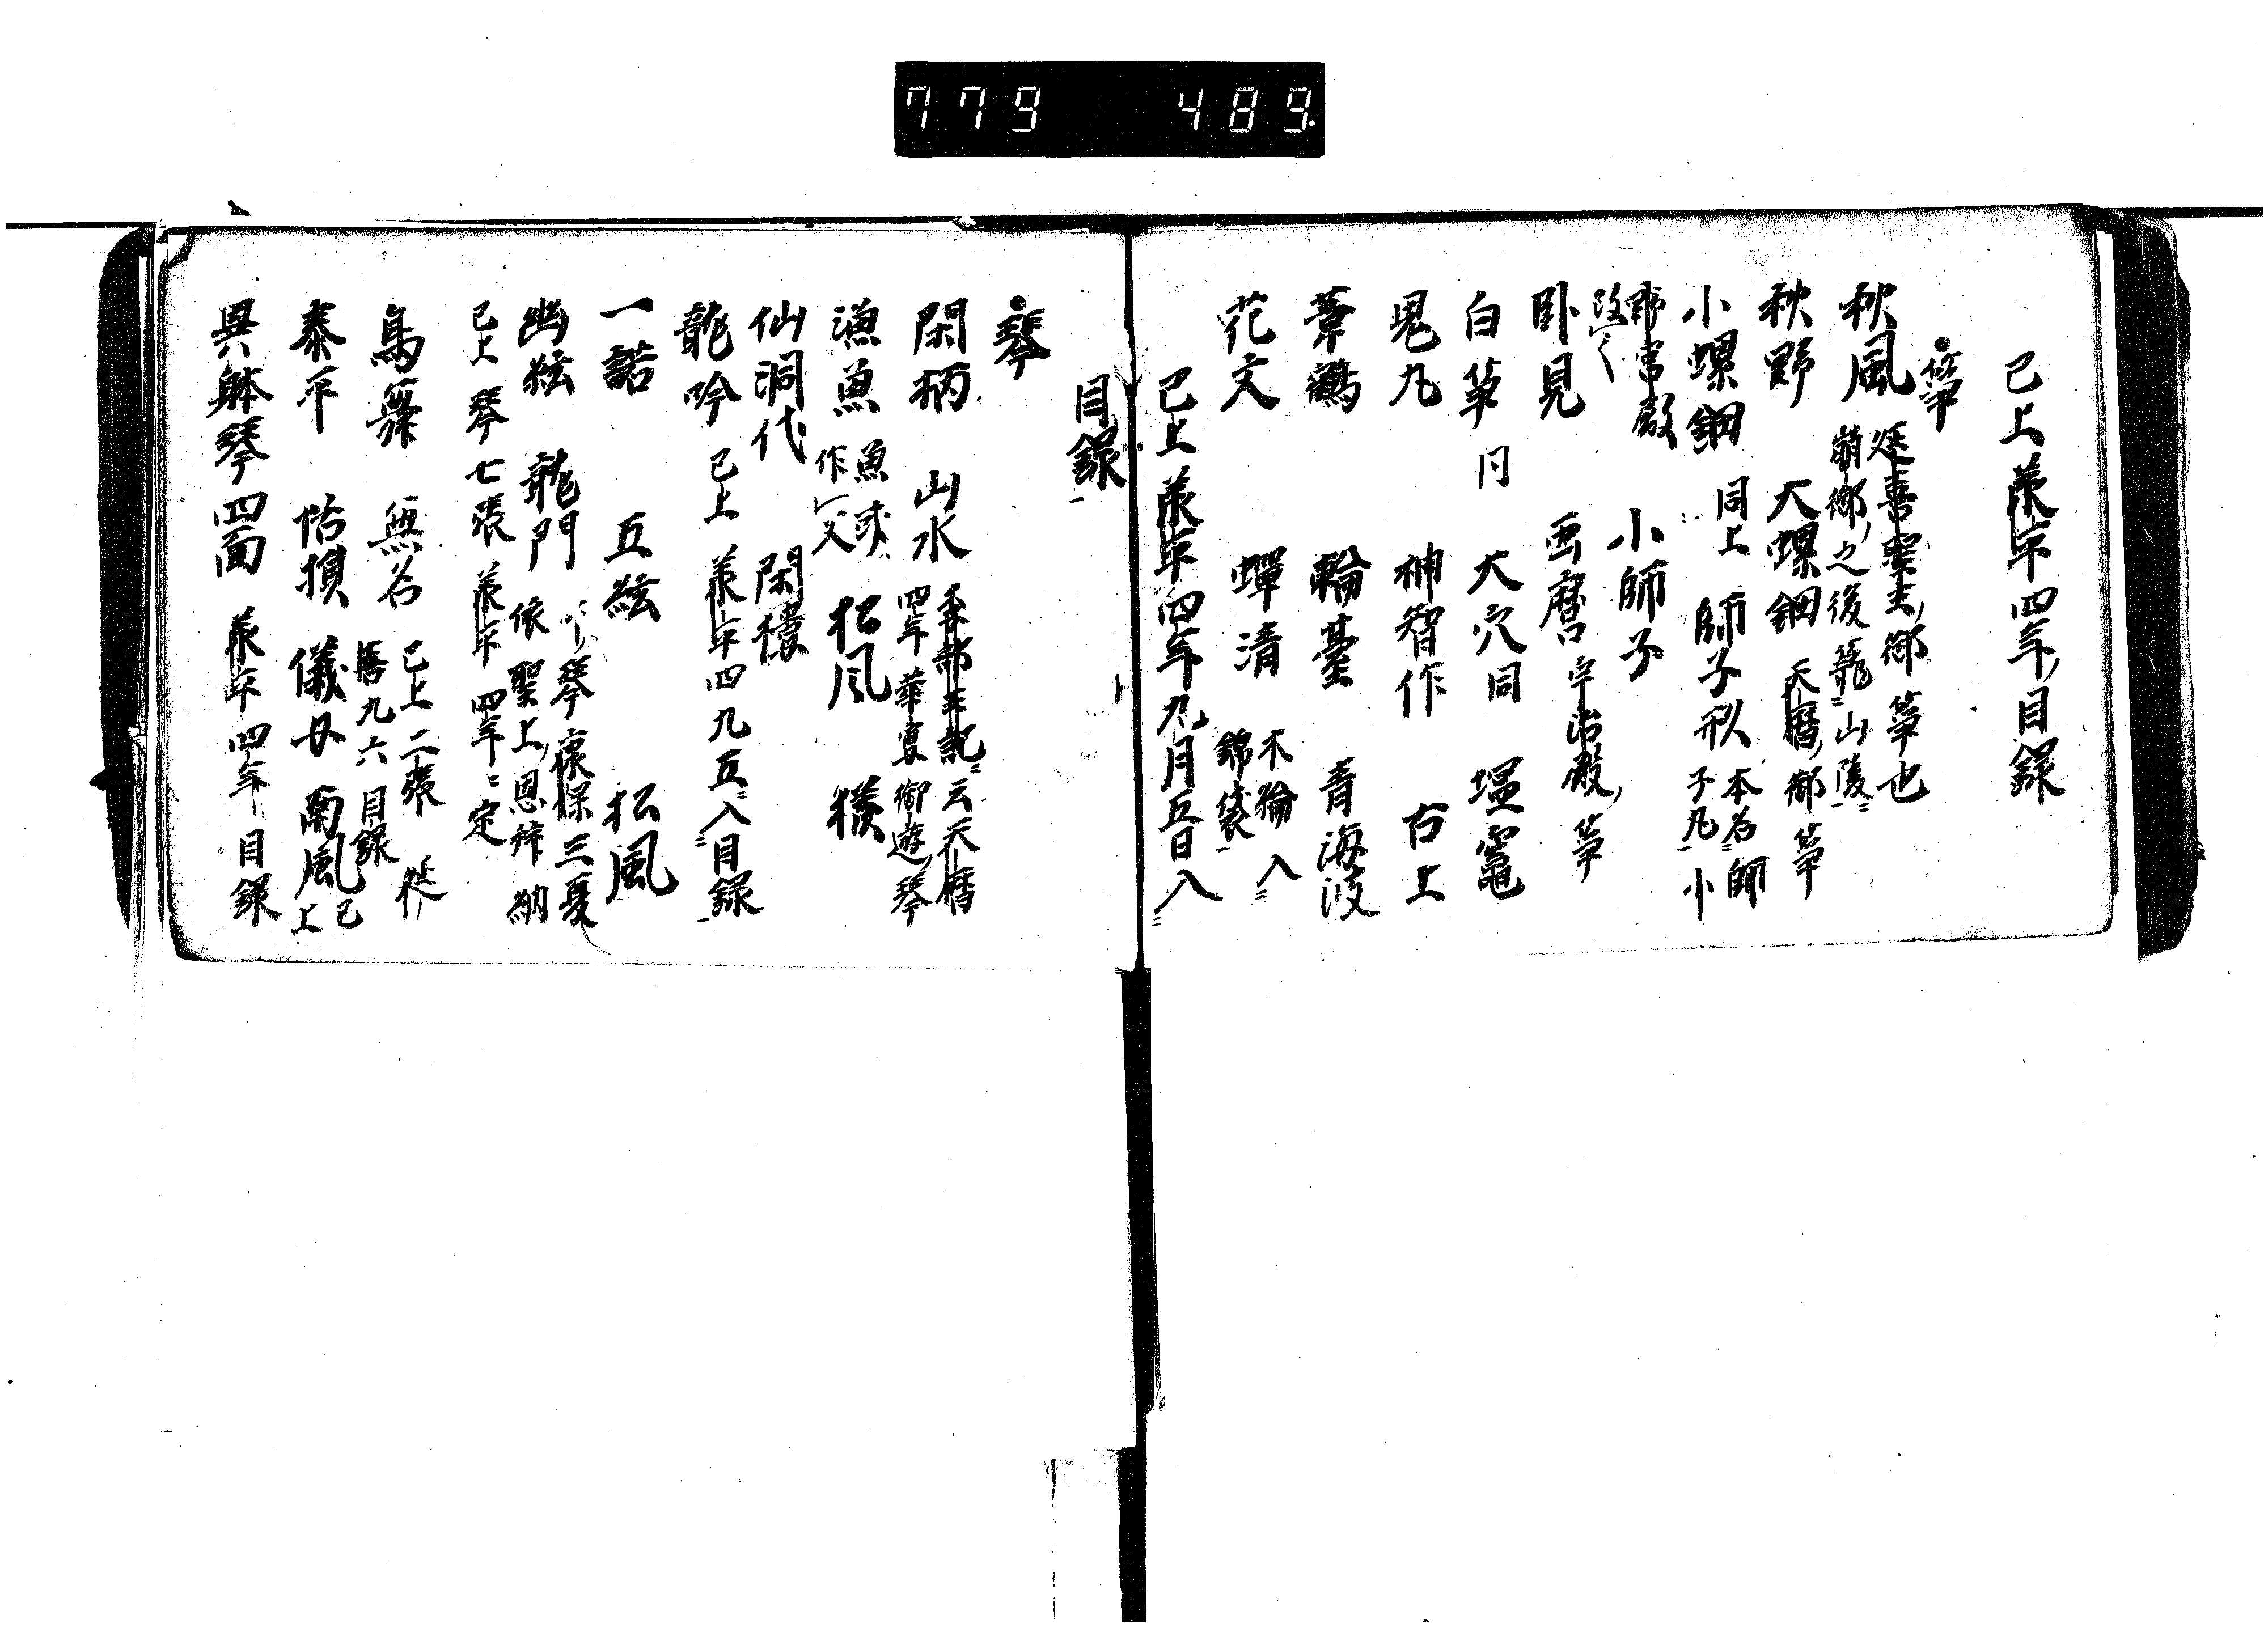 779 489
已上承平四年目録
箏
秋風 延喜聖主御箏也
崩御之後籠山陵
秋野 大螺鈿 天暦御箏
小螺鈿 同上 師子形 本名師
子丸小
師常啟
改々 小師子
臥見 西磨 宇治殿箏
白箏 同 大穴 同 塩竈
鬼丸 神智作 右上
葦鶴 輪臺 青海波
花文 蟬清 不論入
錦袋
已上承平四年九月五日入
目録
琴
閑栖 山水 李部王記云天暦
四年華宴御遊琴
漁魚 魚或
作父 松風 様
仙洞代 閑樓
龍吟 已上承平四九五入目録
一諾 五絃 松風
幽絃 龍門 琴懐保三夏
依聖上恩 納
已上琴七張 承平四年定
鳥舞 無名 已上二張 延
喜九六目録
泰平 怡損 儀女 南風 已
上
異躰琴四面 承平四年目録